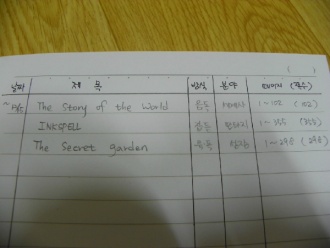 ( )
날짜 제목 방식 분야 페이지 (쪽수)
The Story of the World 음독 1~102 (102)
INKSPELL 음독 판타지 1~355 (355)
The Secret garden 1~298 (298)